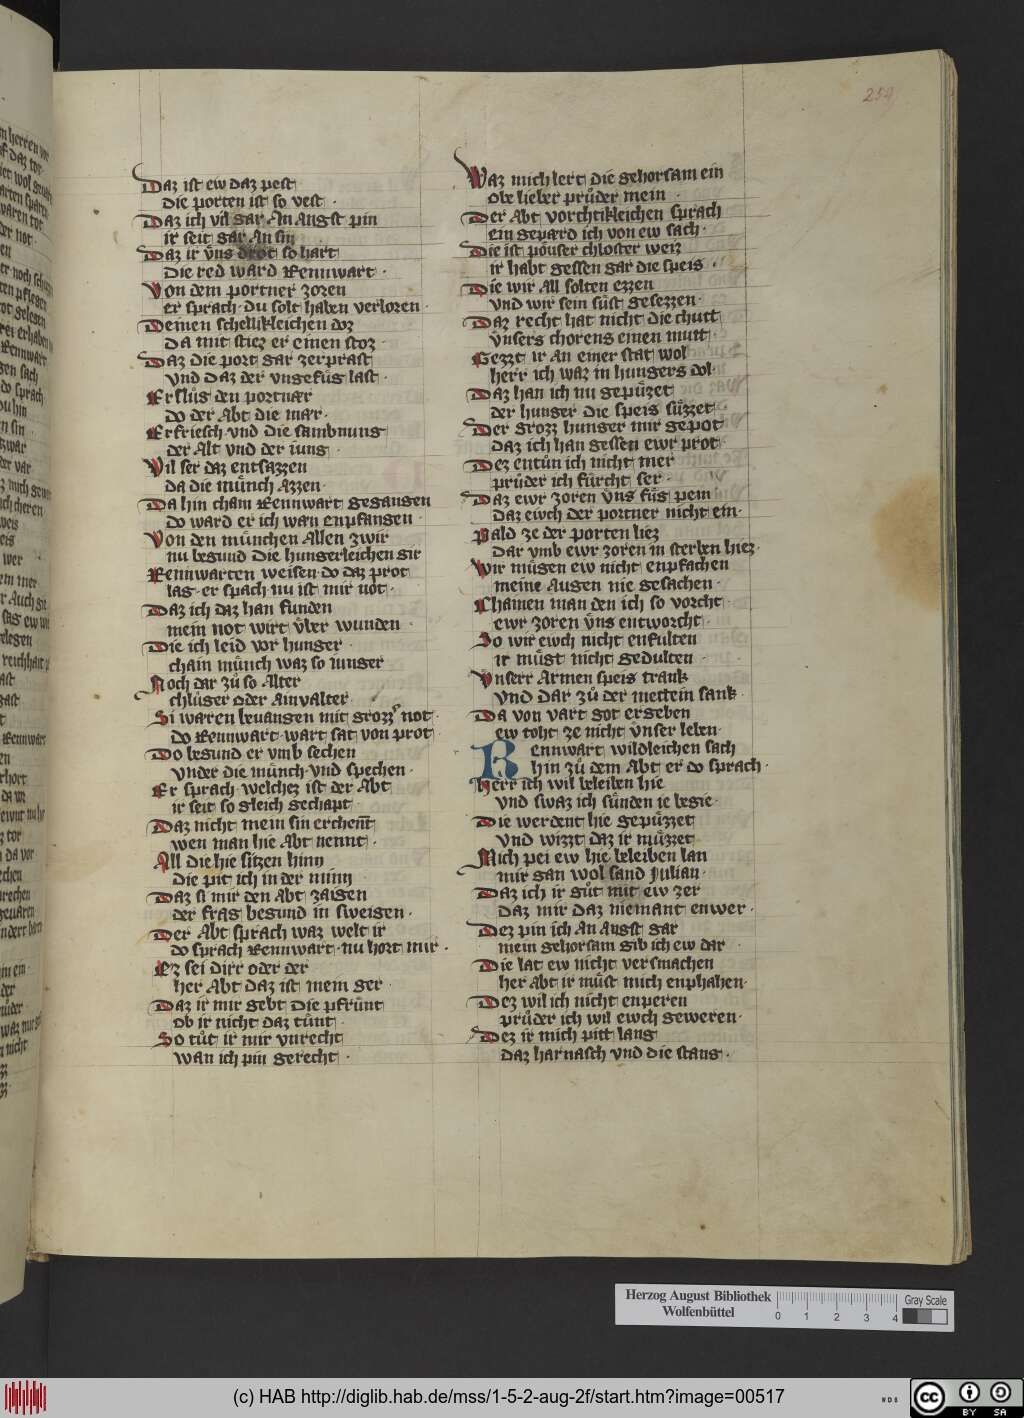 259
Daz ist ew daz pest
die porten ist so vest
Daz ich vil gar An Angst pin
ir seit gar An sin
Daz ir vͦns drot so hart
die red ward Rennwart ·
Von dem portner zoren
er sprach · du solt haben verloren ·
Deinen schelkleichen
Da mit stiez er einen stoz ·
Daz die port gar zerprast
vnd daz der vngefuͤg last ·
Er sluͦg den portnær
do der Abt die mær ·
Erfriesch · vnd die samnung
der Alt vnd der iung ·
Vil ser daz entsazzen
da die muͤnch Azzen ·
Da hin cham Rennwart gegangen
do ward er ich wan enpfangen ·
Von den muͤnchen Allen zwir
nu begund die hungerleichen gir
Rennwarten weisen · do daz prot
lag · er spach nu ist mir not ·
Daz ich daz han funden
mein not wirt vͤber wunden ·
Die ich leid vor hunger ·
chain muͤnch waz so iunger
Noch dar zuͦ so Alter
chluͤger oder Ainvalter ·
Si waren bevangen mit grozzer not ·
do Rennwart wart sat von prot
Do begund er vmb sechen
vnder die muͤnch · vnd spechen ·
Er sprach welchez ist der Abt
ir seit so gleich gechapt ·
Daz nicht mein sin erchent
wen man hie Abt nennt ·
All die hie sitzen hinn
die pit ich in der minn
Daz si mir den Abt zaigen
der frag begund in sweigen ·
Der Abt sprach waz welt ir
do sprach Rennwart · nu hort mir ·
Ez sei dirr oder der
her Abt daz ist mein ger ·
Daz ir mir gebt die pfruͤnt
ob ir nicht daz tuͤnt ·
So tuͦt ir mir vnrecht
wan ich pin gerecht ·
Waz mich lert die gehorsam ein
obe lieber pruͦder mein ·
Der Abt vorchtikleichen sprach
ein gepærd ich von ew sach ·
Die ist poͤuser chloster weiz
ir habt gessen gar die speis ·
Die wir All solten ezzen
vnd wir sein suͤst gesezzen ·
Daz recht hat nicht die chutt
vͦnsers chorens einen mutt ·
Gezzt ir An einer stat wol
herr ich waz in hungers dol ·
Daz han ich nu gepuͤzet
der hunger die speis suͤzzet ·
Der grozz hunger mir gepot
daz ich han gessen ewr prot ·
Dez entuͦn ich nicht mer
pruͦder ich fuͤrcht ser ·
Daz ewr zoren vͦns fuͤg pein
daz ewch der portner nicht ein ·
Pald ze der porten liez
dar vmb ewr zoren in sterben hiez ·
Wir muͤgen ew nicht enpfachen
meine Augen nie gesachen ·
Chainen man den ich so vorcht ·
ewr zoren vͦns entworcht ·
So wir ewch nicht enfulten
ir muͤgt nicht gedulten ·
Vͦnserr Armen speis trank
vnd dar zuͦ der mettein sank ·
Da von vart got ergeben
ew toht ze nicht vͦnser leben ·
Rennwart wildleichen sach
hin zuͦ dem Abt er do sprach ·
Herr ich wil beleiben hie
vnd swaz ich suͤnden ie begie ·
Die werdent hie gepuͤzzet
vnd wizzt daz ir muͤzzet
Mich pei ew hie beleiben lan
mir gan wol sand Julian ·
Daz ich ir guͦt mit ew zer
daz mir daz niemant enwer ·
Dez pin ich An Angst gar
mein gehorsam gib ich ew dar ·
Die lat ew nicht versmachen
her Abt ir muͤst mich enphahen ·
Dez wil ich nicht enperen
pruͦder ich wil ewch geweren ·
Dez ir mich pitt lang
daz harnasch vnd die stang ·
Herzog August Bibliothek
Wolfenbüttel
0 1 2 3 4
Gray Scale
(c) HAB http://diglib.hab.de/mss/1-5-2-aug-2f/start.htm?image=00517
WDB
cc BY SA